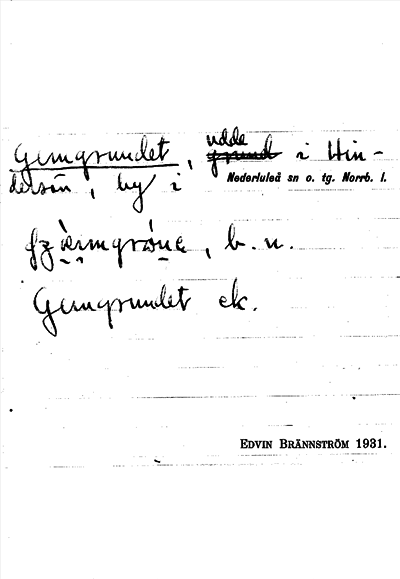 Gemgrundet, udde i Hin-
dersön, by i Nederluleå sn o. tg. Norrb. l.
b. n.
Gemgrundet ek.
EDVIN BRÄNNSTRÖM 1931.